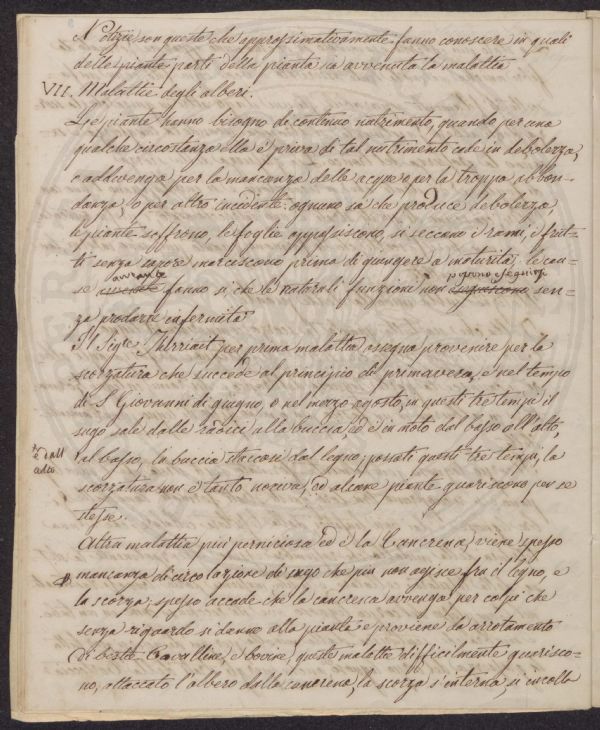 Notizie son queste che approssimativamente fanno conoscere in quali
delle piante parti della pianta sia avvenuta la malattia
VII. Malattie degli alberi.
Le piante hanno bisogno di continuo nutrimento, quando per una
qualche circostanza ella è priva di tal nutrimento cade in debolezza,
o addivenga per la mancanza delle acque o per la troppa abbon-
danza, o per altro incidente: ognuno sà che produce debolezza
le piante soffrono, le foglie appassiscono, si seccano i rami, i frut-
ti senza sapore marciscono prima di giungere a maturità; le cau-
se avvenute fanno si, che le naturali funzioni non possono eseguirsi sen-
za produrre infermità
Il Sigre per prima malattia assegna provenire per la
scorzatura che succede al principio di primavera, e nel tempo
di S. Giovanni di giugno, o nel mezzo agosto, in questi tre tempi il
sugo sale dalle radici alla buccia, ed è in moto dal basso all'alto,
e dall'
alto
al basso, la buccia staccasi dal legno; passati questi tre tempi, la
scorzatura non è tanto nociva, ed alcune piante guariscono per se
stesse.
Altra malattia più perniciosa ed è la Cancrena, viene spesso
mancanza di circolazione di sugo che più non agisce fra il legno, e
la scorza; spesso accade che la cancrena avvenga per colpi che
senza riguardo si danno alla pianta e proviene da arrotamento
di bestie Cavalline, e bovine, queste malattie difficilmente guarisco-
no, attaccato l'albero dalla cancrena, la scorza s'interna, si incolla